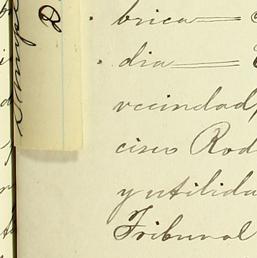 brica
dia
vecindad,
cisco Rod
y utilida
Tribunal